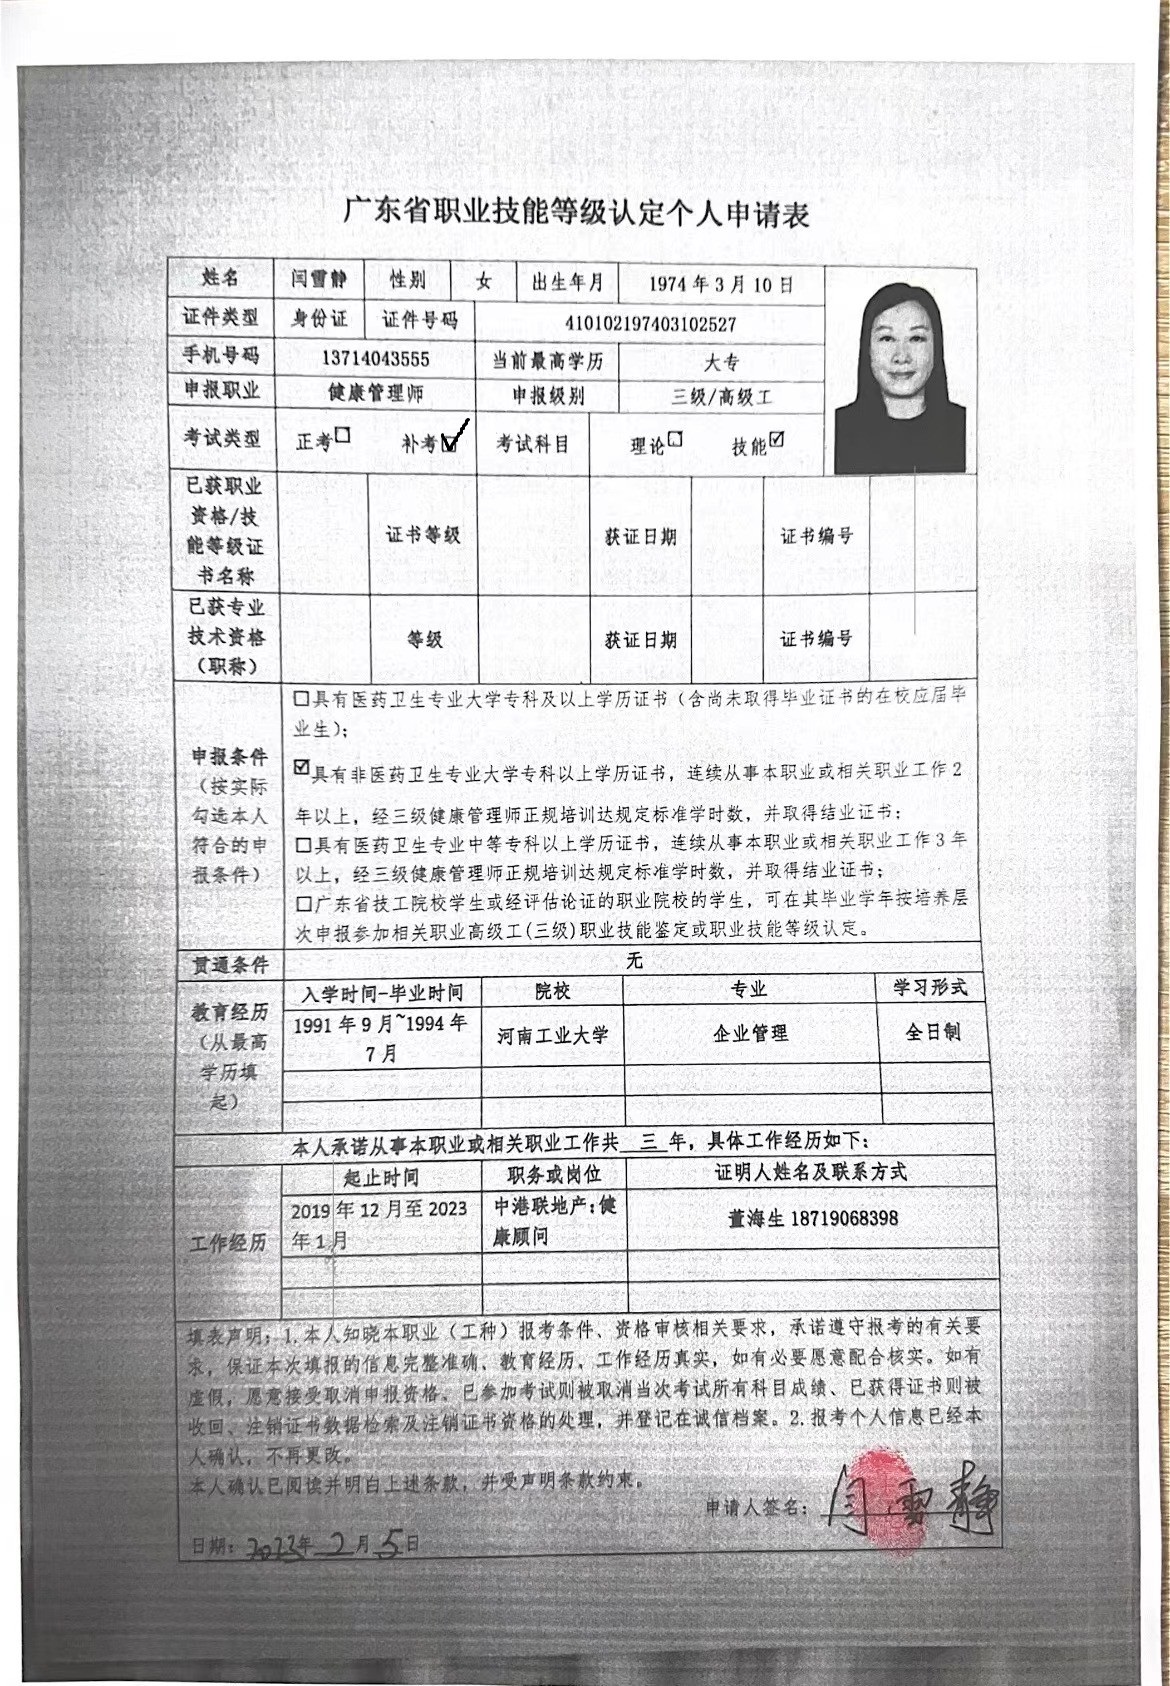 广东省职业技能等级认定个人申请表
姓名 闫雪静 性别 女 出生年月 1974年3月10日
证件类型 身份证 证件号码 410102197403102527
手机号码 13714043555 当前最高学历 大专
申报职业 健康管理师 申报级别 三级/高级工
考试类型 正考☐ 补考☑ 考试科目 理论☐ 技能☑
已获职业
资格/技
能等级证
书名称
证书等级 获证日期 证书编号
已获专业
技术资格
（职称）
等级 获证日期 证书编号
申报条件
（按实际
勾选本人
符合的申
报条件）
☐具有医药卫生专业大学专科及以上学历证书（含尚未取得毕业证书的在校应届毕
业生）；
☑具有非医药卫生专业大学专科以上学历证书，连续从事本职业或相关职业工作2
年以上，经三级健康管理师正规培训达规定标准学时数，并取得结业证书；
☐具有医药卫生专业中等专科以上学历证书，连续从事本职业或相关职业工作3年
以上，经三级健康管理师正规培训达规定标准学时数，并取得结业证书；
☐广东省技工院校学生或经评估论证的职业院校的学生，可在其毕业学年按培养层
次申报参加相关职业高级工(三级)职业技能鉴定或职业技能等级认定。
贯通条件 无
教育经历
（从最高
学历填
起）
入学时间-毕业时间 院校 专业 学习形式
1991年9月~1994年
7月
河南工业大学 企业管理 全日制
本人承诺从事本职业或相关职业工作共 三 年，具体工作经历如下：
工作经历
起止时间 职务或岗位 证明人姓名及联系方式
2019年12月至2023
年1月
中港联地产：健
康顾问
董海生 18719068398
填表声明：1.本人知晓本职业（工种）报考条件、资格审核相关要求，承诺遵守报考的有关要
求，保证本次填报的信息完整准确、教育经历、工作经历真实，如有必要愿意配合核实。如有
虚假，愿意接受取消申报资格、已参加考试则被取消当次考试所有科目成绩、已获得证书则被
收回、注销证书数据检索及注销证书资格的处理，并登记在诚信档案。2.报考个人信息已经本
人确认，不再更改。
本人确认已阅读并明白上述条款，并受声明条款约束。
申请人签名：闫雪静
日期：2023年2月5日